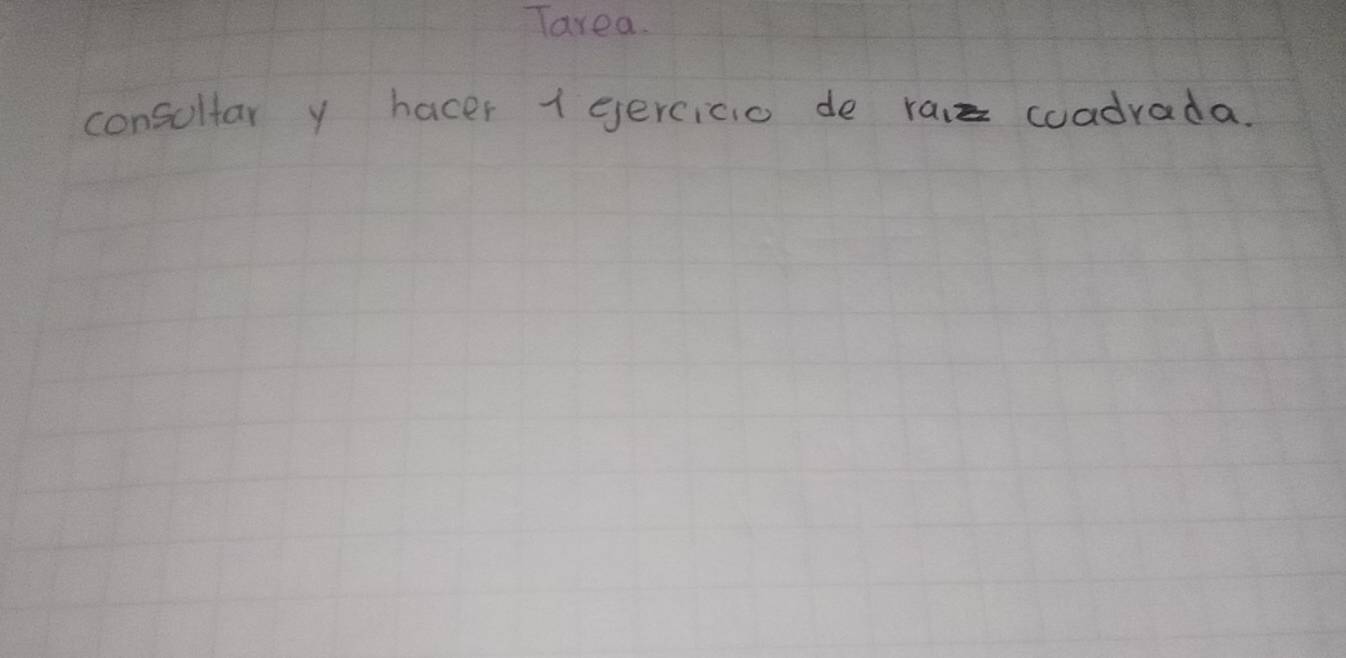 Tarea.
consultar y hacer 1 ejercicio de raiz cuadrada.